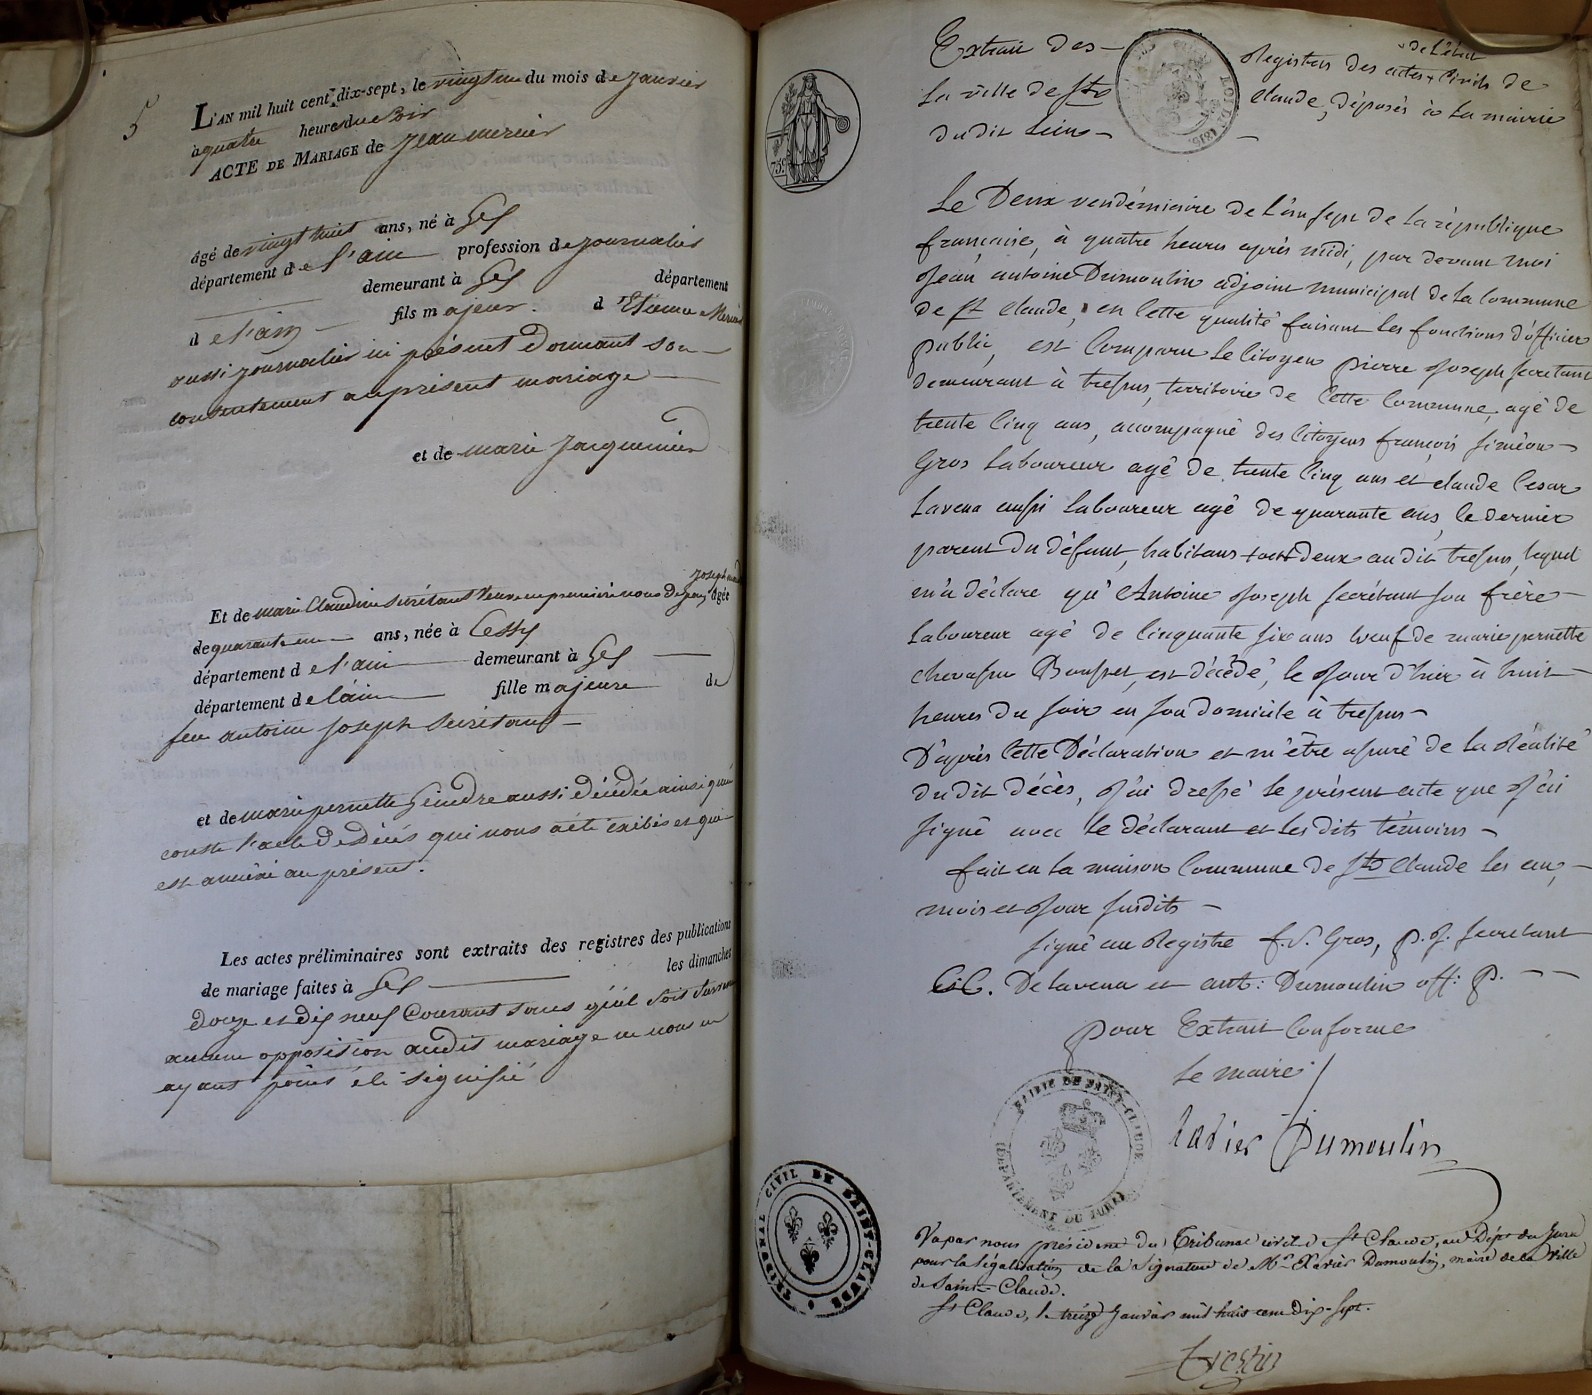 5
L'AN mil huit cent dix-sept, le vingt un du mois de janvier
à quatre heures du soir
ACTE DE MARIAGE de Jean mercier
âgé de vingt huit ans, né à Gex
département de l'ain profession de journalier
demeurant à Gex département
de l'ain fils majeur. d'Etienne Mercier
aussi journalier ici présent donnant son
consentement au présent mariage
et de marie Jacquemier
Joseph
Et de marie Claudine secrétant veuve en premiere noces de agée
de quarante un ans, née à Cessy
département de l'ain demeurant à Gex
département de l'ain fille majeure de
feu antoine joseph secrétant
et de marie pernette Geindre aussi décédée ainsi que
conste l'acte de décés qui nous a été exibés et qui
est annéxé au présent.
Les actes préliminaires sont extraits des registres des publications
de mariage faites à Gex les dimanches
douze et dix neuf courant sans qu'il soit survenu
aucune opposition audit mariage ni nous en
ayant point été signifié
75c
Extrait des Registres des actes civils de
de l'état
La ville de St Claude, déposés à la mairie
dudit Lieu
Le Deux vendémiaire de l'an sept de la république
française, à quatre heures après midi, par devant moi
Jean antoine Dumoulin adjoint municipal de la Commune
de St Claude, en cette qualité faisant les fonctions d'officier
public, est Comparu le Citoyen pierre Joseph secretant
demeurant à tressus, territoire de cette Commune, agé de
trente Cinq ans, accompagné des Citoyens françois siméon
Gros Laboureur agé de trente Cinq ans et claude Cesar
Lavena aussi Laboureur agé de quarante ans, le dernier
parent du défunt, habitans tout deux au dit tressus, lequel
m'a déclare qu'Antoine Joseph secrétant son frère
Laboureur agé de Cinquante six ans veuf de marie pernette
chevassu Bousset, est décédé, le Jour d'hier à huit
heures du soir en son domicile à tressus
D'après Cette Déclaration et m'être assuré de la Réalité
dudit Décès, J'ai dressé le présent acte que J'ai
signé avec le déclarant et les dits témoins
fait en la maison Commune de St Claude les an,
mois et Jour susdits
signé au Registre f. S. Gros, p. J. secretant
C. C. Delavena et ant: Dumoulin off: p.
pour Extrait Conforme
Le maire
Xavier Dumoulin
MAIRIE DE SAINT-CLAUDE
DÉPARTEMENT DU JURA
TRIBUNAL CIVIL DE SAINT-CLAUDE
Vu par nous président du Tribunal civil de St Claude, au Dépt du Jura
pour la légalisation de la signature de Mr Xavier Dumoulin, maire de la Ville
de Saint-Claude.
St Claude, le treize Janvier mil huit cent dix-sept.